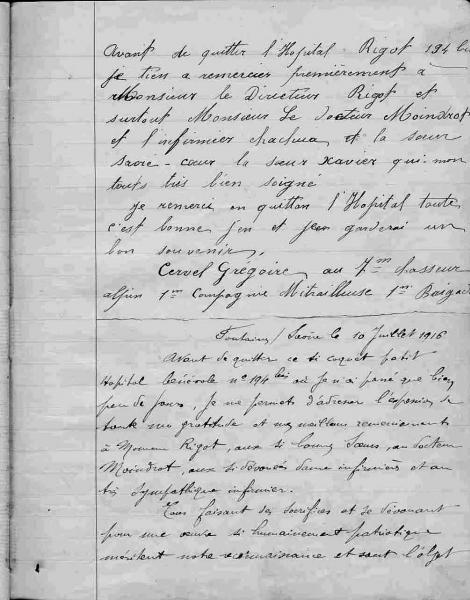 Avant de quitter l'Hopital Rigot 194 bis
je tiens a remercier premièrement à
Monsieur le Directeur Rigot et
surtout Monsieur Le docteur Moindrot
et l'infirmier et la sœur
sacré-cœur la sœur Xavier qui mon
touts très bien soigné
je remerci en quittan l'Hopital toute
c'est bonne et jen garderai un
bon souvenir,
Cervel Grégoire au 7m chasseur
alpin 1m Compagnie Mitrailleuse 1m Baigade
Fontaines / Saône le 10 Juillet 1916
Avant de quitter ce si coquet petit
Hopital bénévole n° 194 bis où je n'ai passé que bien
peu de jours, je me permets d'adresser l'expression de
toute ma gratitude et mes meilleurs remerciements
à Monsieur Rigot, aux si bonnes Sœurs, au docteur
Moindrot, aux si dévouées Dame infirmières et au
très sympathique infirmier.
Tous faisant des sacrifices et se dévouant
pour une œuvre si humainement patriotique
méritent notre reconnaissance et sont l'objet